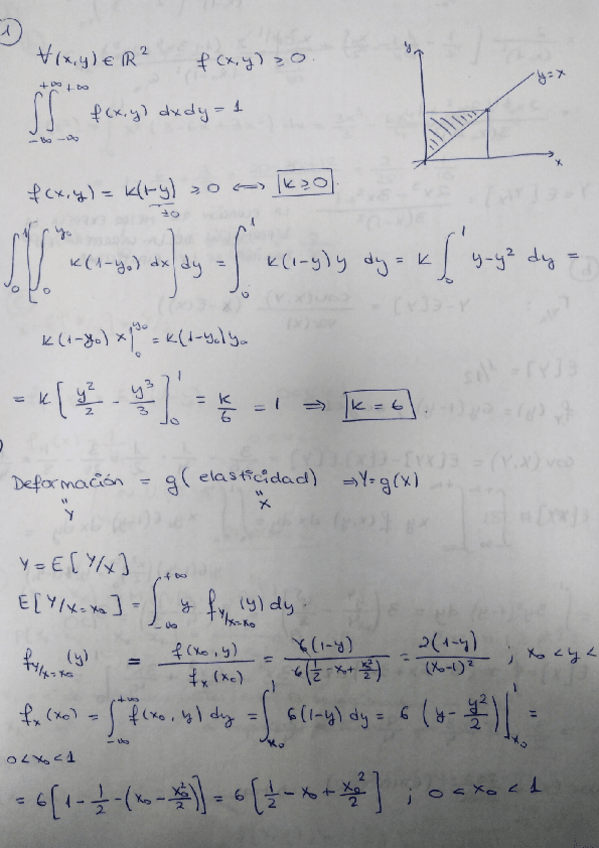 1
∀(x,y) ∈ ℝ² f(x,y) ≥ 0.
∫_{-∞}^{+∞} ∫_{-∞}^{+∞} f(x,y) dx dy = 1
y
y=x
x
f(x,y) = k(1-y) ≥ 0 ⟺ k ≥ 0.
≥0
∫_0^1 [∫_0^{y₀} k(1-y₀) dx] dy = ∫_0^1 k(1-y) y dy = k ∫_0^1 y-y² dy =
k(1-y₀) x |_0^{y₀} = k(1-y₀) y₀
= k [y²/2 - y³/3]_0^1 = k/6 = 1 ⟹ k = 6.
)
Deformación = g(elasticidad) ⇒ Y = g(x)
" "
Y X
Y = E[Y/X]
E[Y/X=x₀] = ∫_{-∞}^{+∞} y f_{Y/X=x₀}(y) dy.
f_{Y/X=x₀}(y) = f(x₀,y)/f_x(x₀) = 6(1-y)/6(1/2 - x₀ + x₀²/2) = 2(1-y)/(x₀-1)² ; x₀ < y <
f_x(x₀) = ∫_{-∞}^{+∞} f(x₀,y) dy = ∫_{x₀}^1 6(1-y) dy = 6 (y - y²/2)|_{x₀}^1 =
0 < x₀ < 1
= 6[1 - 1/2 - (x₀ - x₀²/2)] = 6[1/2 - x₀ + x₀²/2] ; 0 < x₀ < 1